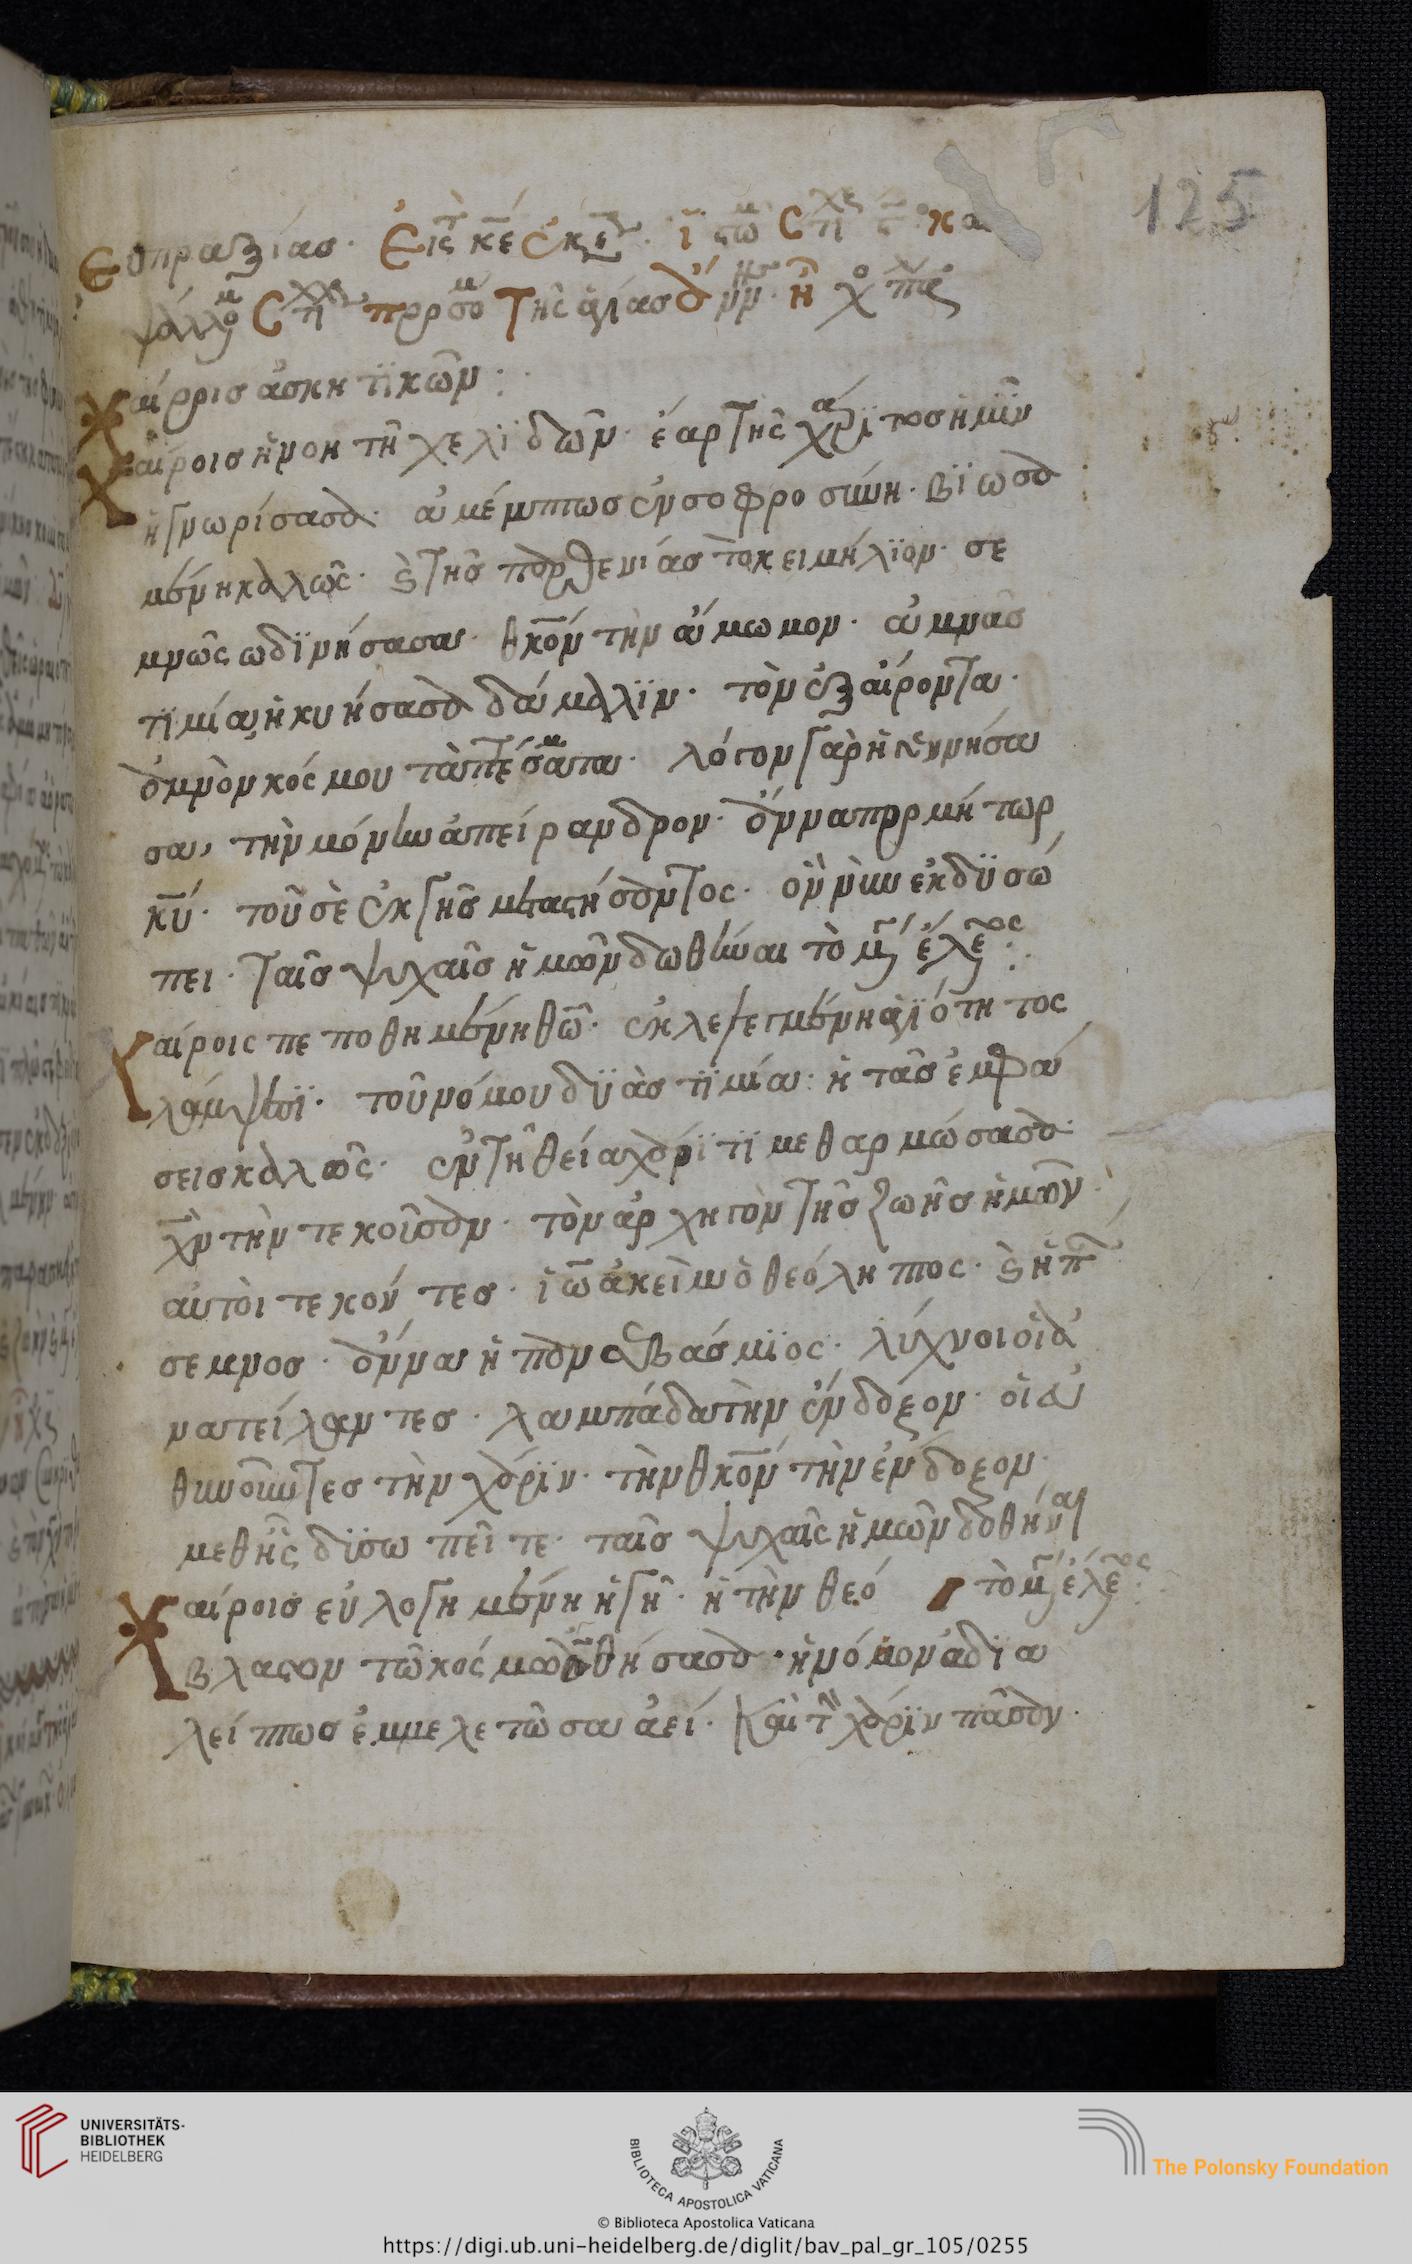 125
Ευπραξίασ· Εἰς τ κε ἐκέ
ψάλλομ Στιχ προσόμ Τῆς ἁγίασ ἄνν
αίροισ ἀσκητϊκῶν:
αίροισ ἡ νοητῆ χελϊδῶν· ἔαρ τῆς χάρϊτοσ ἡμῖν
ἡ γνωρίσασα· ἀμέμπτωσ ἐν σοφροσύνη· βϊώσα
μένη καλῶς· ϗ τῆσ παρθενίασ το κειμήλϊον· σε
μνῶς ωδϊνήσασα· θκον τὴν ἄμωμον· ἀμνὰσ
τϊμία ἡ κυήσασα δάμαλϊν· τὸν ἐξαίροντα·
ἀμνὸν κόσμου τὰ πτέσματα· λόγον γὰρ ἡ γεννήσα
σα, τὴν μόνην ἀπείρανδρον· ἄννα προμήτωρ
κυ· τοῦ σὲ ἐκ γῆσ μεταστήσαντος· ὃν νῦν εκδϋσώ
πει· ταῖσ ψυχαῖσ ἡμῶν δωθῆναι τὸ μγ ἔλεος:
αίροις πεποθημένη θῶ· ἐκλελεγμένη ἁγϊότητος
λάμψει· τοῦ νόμου δϋὰσ τϊμία· ἡ τὰσ ἐμφά
σεισ καλῶς· ἐν τῆ θεία χάρϊτϊ μεθαρμώσασα·
χν τὴν τεκοῦσαν· τὸν ἀρχηγὸν τῆσ ζωῆσ ἡμῶν·
αὐτὸι τεκόντεσ· ἰωακεὶμ ὁ θεόληπτος· ϗ ἡ π
σεμνοσ· ἄννα ἡ πανσεβάσμϊος· λύχνοι οἱ ἀ
νατείλαντεσ· λαμπάδα τὴν ἔνδοξον· οἱ ἀ
θηνοῦντεσ τὴν χάρϊν· τὴν θκον τὴν ἐνδοξον·
μεθῆς δϋσωπεῖτε· ταῖσ ψυχαῖς ἡμῶν δοθῆναι
αίροισ εὐλογημένη ἡ γῆ· ἡ τὴν θεό τὸ μγ ἔλεος:
βλαστον τῶ κόσμω ἀνθήσασα· ἡ νόμον ἀδϊα
λείπτωσ ἐμμελετῶσα ἀεί· καὶ τὴν χάρϊν πᾶσαν·
UNIVERSITÄTS-
BIBLIOTHEK
HEIDELBERG
BIBLIOTECA APOSTOLICA VATICANA
The Polonsky Foundation
© Biblioteca Apostolica Vaticana
https://digi.ub.uni-heidelberg.de/diglit/bav_pal_gr_105/0255